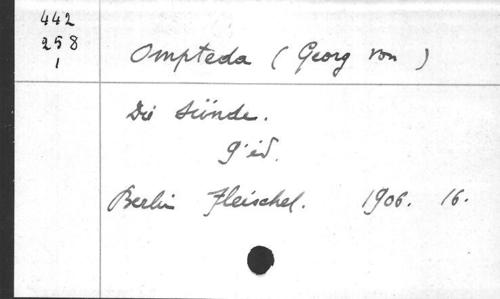 442
258
1
Ompteda (Georg von)
Die Sünde.
9'éd.
Berlin Fleischel. 1906. 16.